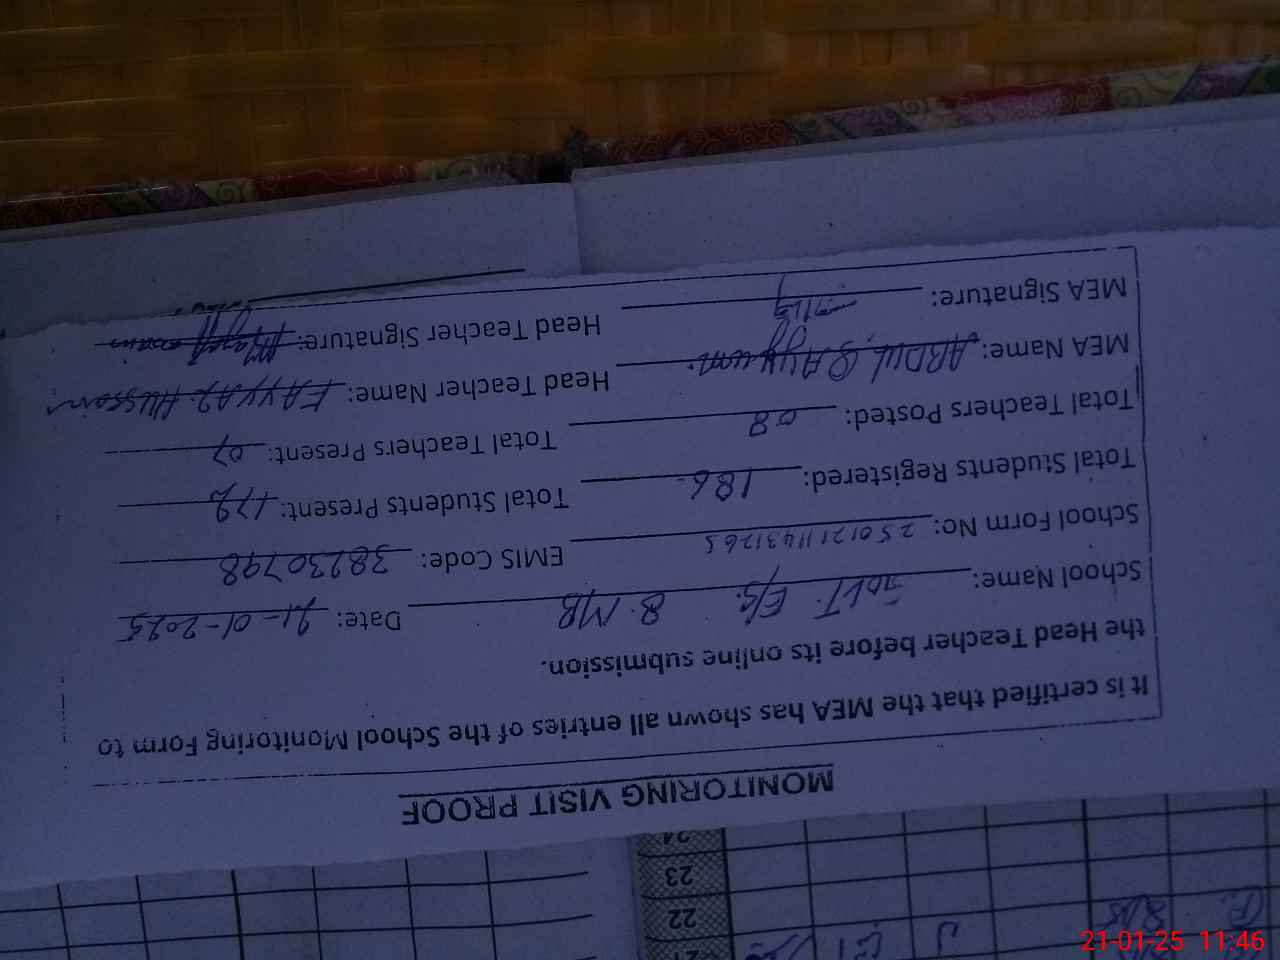 MONITORING VISIT PROOF
It is certified that the MEA has shown all entries of the School Monitoring Form to
the Head Teacher before its online submission.
School Name: E/S. 8. MB Date: 21-01-2025
School Form No: EMIS Code: 38230798
Total Students Registered: 186 Total Students Present: 172
Total Teachers Posted: 08 Total Teachers Present: 07
MEA Name: ABDUL QAYYUM Head Teacher Name: FAYYAZ HUSSAIN
MEA Signature: Head Teacher Signature:
21
22
23
24
21-01-25 11:46